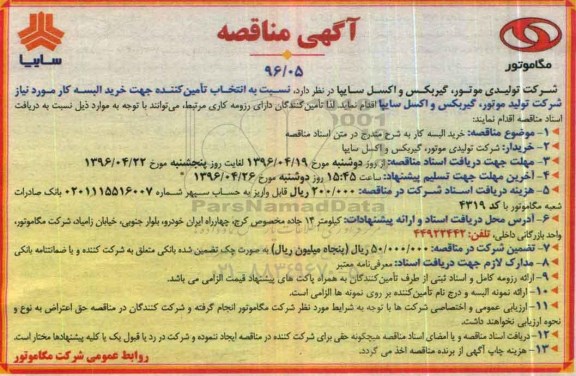 آگهی مناقصه
۹۶/۰۵
سایپا
مگاموتور
شرکت تولیدی موتور، گیربکس و اکسل سایپا در نظر دارد، نسبت به انتخاب تأمین‌کننده جهت خرید البسه کار مورد نیاز
شرکت تولید موتور، گیربکس و اکسل سایپا اقدام نماید. لذا تأمین‌کنندگان دارای رزومه کاری مرتبط، می‌توانند با توجه به موارد ذیل نسبت به دریافت
اسناد مناقصه اقدام نمایند:
۱- موضوع مناقصه: خرید البسه کار به شرح مندرج در متن اسناد مناقصه
۲- خریدار: شرکت تولیدی موتور، گیربکس و اکسل سایپا
۳- مهلت جهت دریافت اسناد مناقصه: از روز دوشنبه مورخ ۱۳۹۶/۰۴/۱۹ لغایت روز پنجشنبه مورخ ۱۳۹۶/۰۴/۲۲
۴- آخرین مهلت جهت تسلیم پیشنهاد: ساعت ۱۵:۴۵ روز دوشنبه مورخ ۱۳۹۶/۰۴/۲۶
۵- هزینه دریافت اسناد شرکت در مناقصه: ۲۰۰/۰۰۰ ریال قابل واریز به حساب سپهر شماره ۰۲۰۱۱۱۵۵۱۶۰۰۷ بانک صادرات
شعبه مگاموتور با کد ۴۳۱۹
ParsNamadData
۶- آدرس محل دریافت اسناد و ارائه پیشنهادات: کیلومتر ۱۴ جاده مخصوص کرج، چهارراه ایران خودرو، بلوار جنوبی، خیابان زامیاد، شرکت مگاموتور،
واحد بازرگانی داخلی، تلفن: ۴۴۹۲۲۴۴۲
۷- تضمین شرکت در مناقصه: ۵۰/۰۰۰/۰۰۰ ریال (پنجاه میلیون ریال) به صورت چک تضمین شده بانکی متعلق به شرکت کننده و یا ضمانتنامه بانکی
۸- مدارک لازم جهت دریافت اسناد: معرفی‌نامه معتبر
۹- ارائه رزومه کامل و اسناد ثبتی از طرف تأمین‌کنندگان به همراه پاکت های پیشنهاد قیمت الزامی می باشد.
۱۰- ارائه نمونه البسه و درج نام تأمین‌کننده بر روی نمونه ها الزامی است.
۱۱- ارزیابی عمومی و اختصاصی شرکت ها با توجه به شرایط مورد نظر شرکت مگاموتور انجام گرفته و شرکت کنندگان در مناقصه حق اعتراض به نوع و
نحوه ارزیابی نخواهند داشت.
۱۲- دریافت اسناد مناقصه و یا امضای اسناد مناقصه هیچگونه حقی برای شرکت کننده در مناقصه ایجاد ننموده و شرکت در رد یا قبول یک یا کلیه پیشنهادها مختار است.
۱۳- هزینه چاپ آگهی از برنده مناقصه اخذ می گردد.
روابط عمومی شرکت مگاموتور